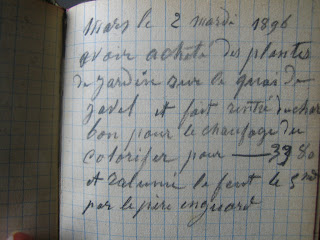 Mars le 2 mardi 1896
avoir acheté des plantes
de jardin sur le quai de
javel et fait rentré du char
bon pour le chaufage du
calorifer pour — 39 80
et ralumé le feut le 5
par le père